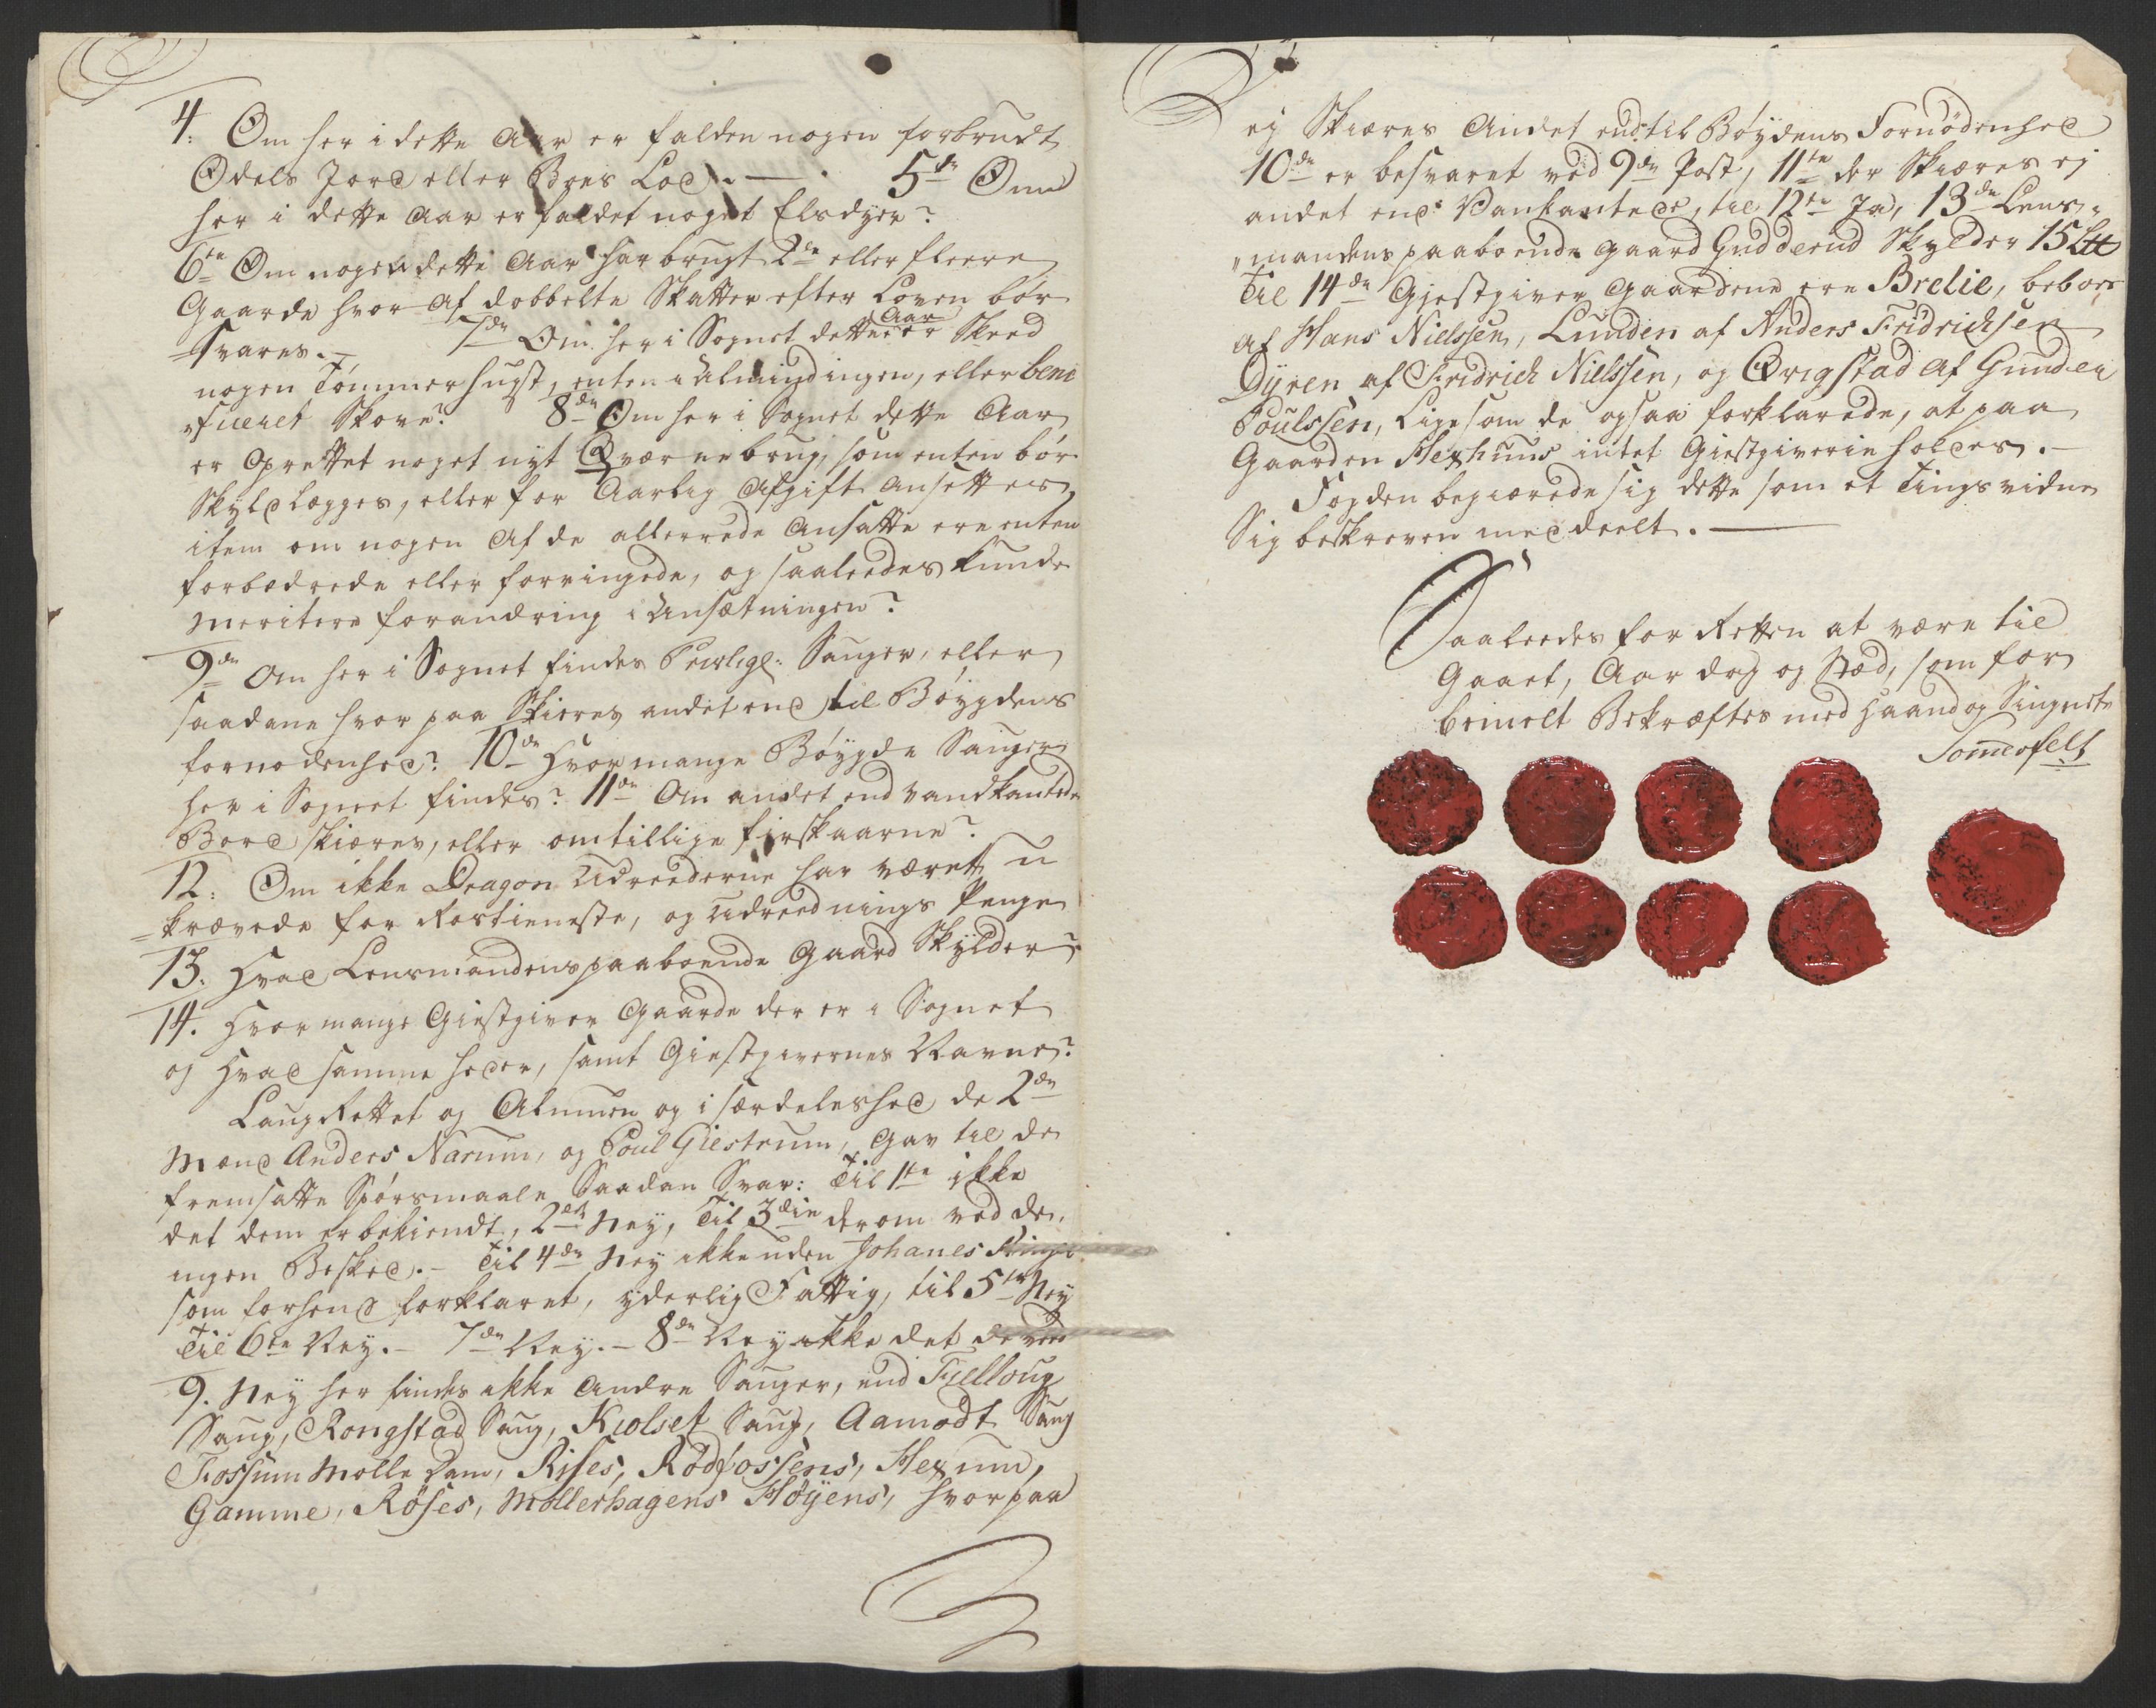 4. Om her i dette Aar er falden nogen forbrudt
Odels Jord eller Boes Lod. — 5te Om
her i dette Aar er faldet noget Elsdyer?
6te Om nogen dette Aar har brugt 2de eller fleere
Gaarde hvor af dobbelte Skatter efter Loven bör
svares. — 7de Om her i Sognet dette Aar er Skeed
nogen Tömmerhugst, enten i Almindingen, eller bene
„ficeret Skove? 8de Om her i Sognet dette Aar
er oprettet noget nyt Qværnebrug, som enten bör
Skyldlægges, eller for Aarlig Afgift ansettes,
item om nogen af de allerrede Ansatte ere enten
forbædrede eller forringede, og saaleedes kunde
meritere forandring i Ansætningen?
9de Om her i Sognet findes Privilig: Sauger, eller
saadane hvor paa Skieres andet end til Böygdens
fornødenhed? 10de Hvor mange Böygde Sauger
her i Sognet findes? 11te Om andet end Vandkantede
Bord skiæres, eller om tillige firskaarne?
12. Om ikke Dragon Udreederne har været
krævede for Rostieneste, og Udreednings Penge
13. Hvad Lensmandens paaboende Gaard Skylder?
14. Hvor mange Giestgiver Gaarde der er i Sognet
og Hvad samme heder, samt Giestgivernes Navne?
Laug Rettet og Almuen og i særdeleshed de 2de
Mænd Anders Narum, og Poul Giestrum, gav til de
fremsatte Spörsmaale Saadan Svar: Til 1te ikke
det dem er bekiendt, 2det Ney, Til 3die derom ved de
ingen Besked. — Til 4de Ney ikke uden Johanes
som forhen er forklaret, yderlig Fattig, til 5te Ney
Til 6te Ney. — 7de Ney. — 8de Ney ikke det de veed
9. Ney her findes ikke andre Sauger, end Fielloug
Saug, Rongstad Saug, Kiolset Saug, Aamodt Saug
Fossum Molle Dam, Rises, Rödfossens, Hexum,
Gamme, Röses, Mollerhagens Höyens, hvor paa
ej Skiæres Andet end til Böydens Fornödenhed
10de er besvaret ved 9de Post, 11te der Skiæres ej
andet end Vankantede, til 12te Ja, 13de Lens„
„mandens paaboende gaard Gudderud Skylder 15 L℔
Til 14de Gjestgiver gaardene ere Brelie, beboes
af Hans Nielssen, Lunden af Anders Fridrichsen
Dyren af Fridrich Nielssen, og Qrigstad af Gunder
Poulssen, Ligesom de ogsaa forklarede, at paa
Gaarden Hexhuus intet Giestgiverie holdes. —
Fogden begiærede sig dette som et Tingsvidne
Sig beskreven meddeelt. —
Saaleedes for Retten at være til
Gaaet, Aar dag og Stæd, som for
bemelt Bekræftes med Haand og Signete
Somerfelt